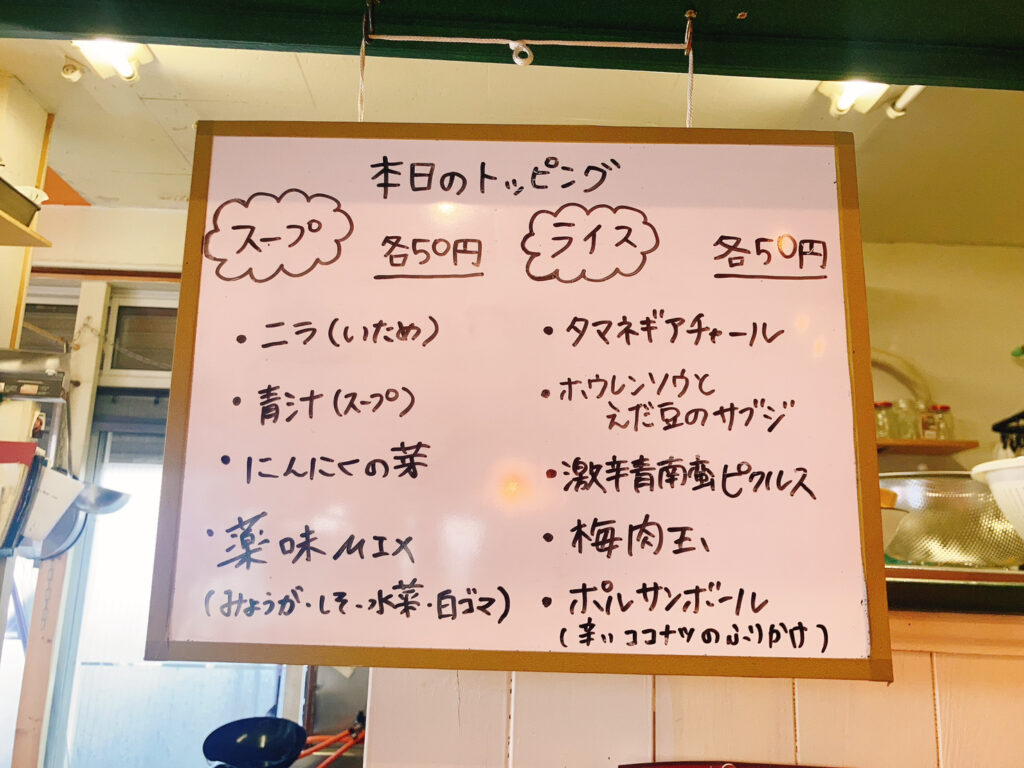 本日のトッピング
スープ 各50円
・ニラ(いため)
・青汁(スープ)
・にんにくの芽
・薬味MIX
(みょうが・しそ・水菜・白ゴマ)
ライス 各50円
・タマネギアチャール
・ホウレンソウと
えだ豆のサブジ
・激辛青南蛮ピクルス
・梅肉玉
・ポルサンボール
(辛いココナツのふりかけ)